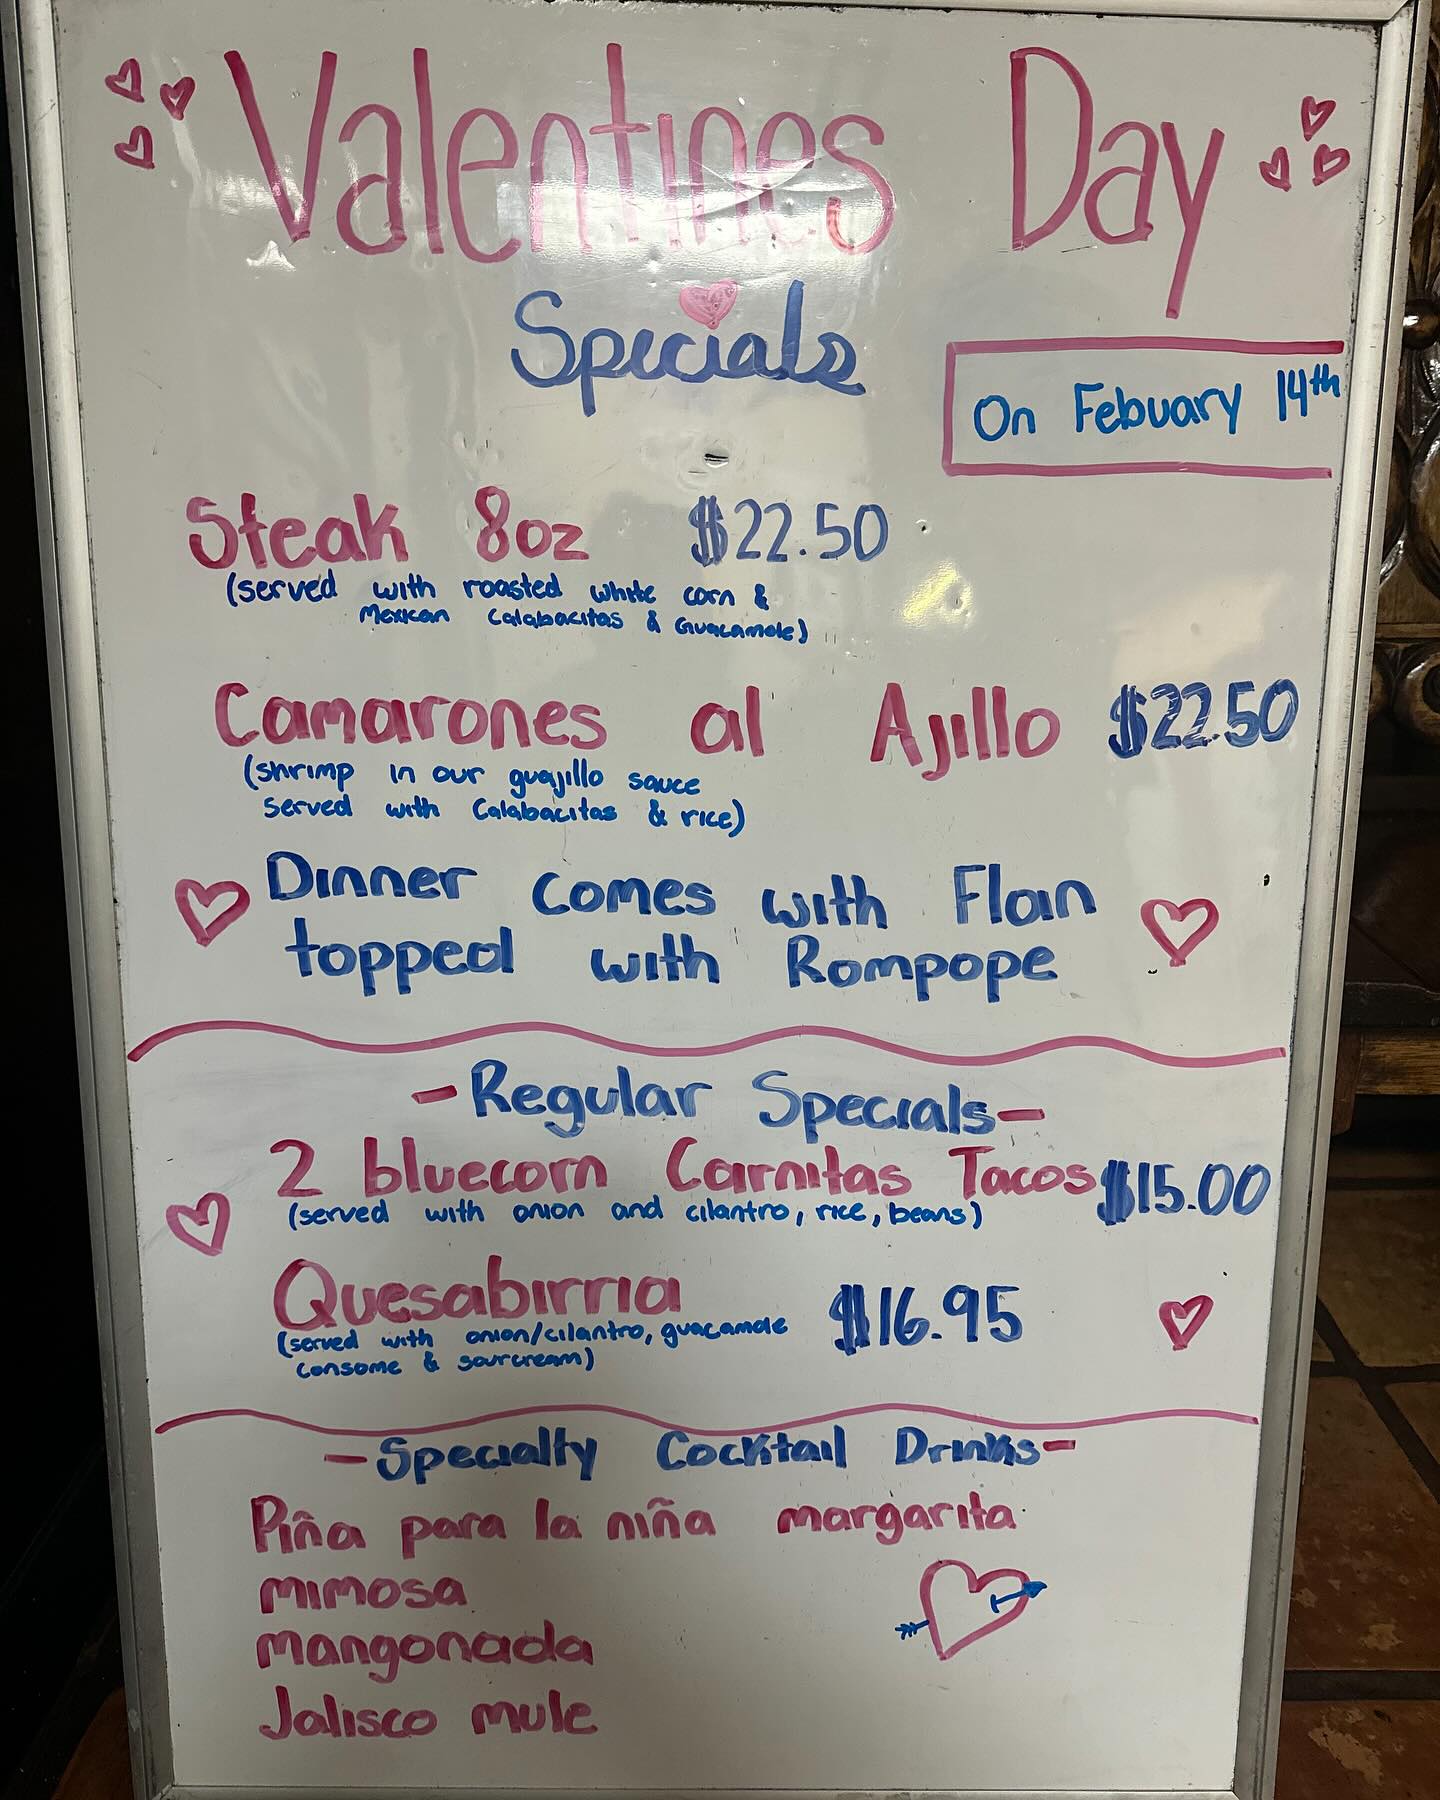 Valentines Day
Specials
On Febuary 14th
Steak 8oz $22.50
(served with roasted white corn &
Mexican Calabacitas & Guacamole)
Camarones al Ajillo $22.50
(shrimp in our guajillo sauce
served with Calabacitas & rice)
Dinner comes with Flan
topped with Rompope
-Regular Specials-
2 bluecorn Carnitas Tacos $15.00
(served with onion and cilantro, rice, beans)
Quesabirria $16.95
(served with onion/cilantro, guacamole
consome & sourcream)
-Specialty Cocktail Drinks-
Piña para la niña margarita
mimosa
mangonada
Jalisco mule